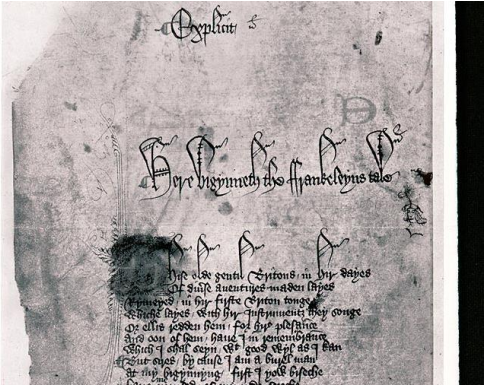 Explicit
Here bigynneth the ffrankeleyns tale
Hise olde gentil Britons / in hir dayes
Of diuse auentures maden layes
Rymeyed / in hir firste Briton tonge
Whiche layes / with hir Instrumentz they songe
Or ellis redden hem / for hir plesance
And oon of hem / haue I in remembrance
Which I shal seyn / wt good wyl as I kan
But sires / by cause I am a burel man
At my bigynnyng / first I yow biseche